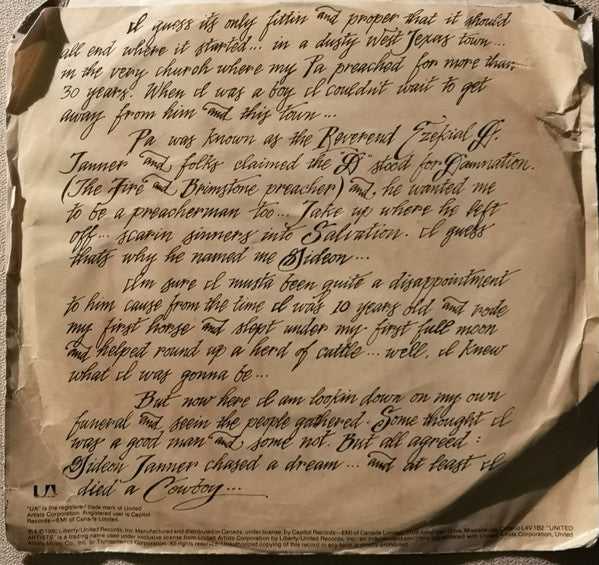 I guess its only fittin and proper that it should
all end where it started... in a dusty West Texas town...
in the very church where my Pa preached for more than
30 years. When I was a boy I couldn't wait to get
away from him and this town...
Pa was known as the Reverend Ezekial D.
Tanner and folks claimed the "D" stood for Damnation.
(The Fire and Brimstone preacher) and, he wanted me
to be a preacherman too... Take up where he left
off... scarin sinners into Salvation. I guess
thats why he named me Gideon...
I'm sure I musta been quite a disappointment
to him cause from the time I was 10 years old and rode
my first horse and slept under my first full moon
and helped round up a herd of cattle... well, I knew
what I was gonna be...
But now here I am lookin down on my own
funeral and seein the people gathered. Some thought I
was a good man and some not. But all agreed:
Gideon Tanner chased a dream... and at least I
died a Cowboy...
UA
"UA" is the registered trade mark of United
Artists Corporation. Registered user is Capitol
Records—EMI of Canada Limited
℗ & © 1980 Liberty/United Records, Inc. Manufactured and distributed in Canada, under license, by Capitol Records—EMI of Canada Limited, 3109 American Drive, Mississauga, Ontario L4V 1B2. "UNITED
ARTISTS" is a trading name used under exclusive license from United Artists Corporation by Liberty/United Records, Inc., an independent company not affiliated with United Artists Corporation, United
Artists Music Co., Inc. or Transamerica Corporation. All rights reserved. Unauthorized copying of this record in any form is strictly prohibited.